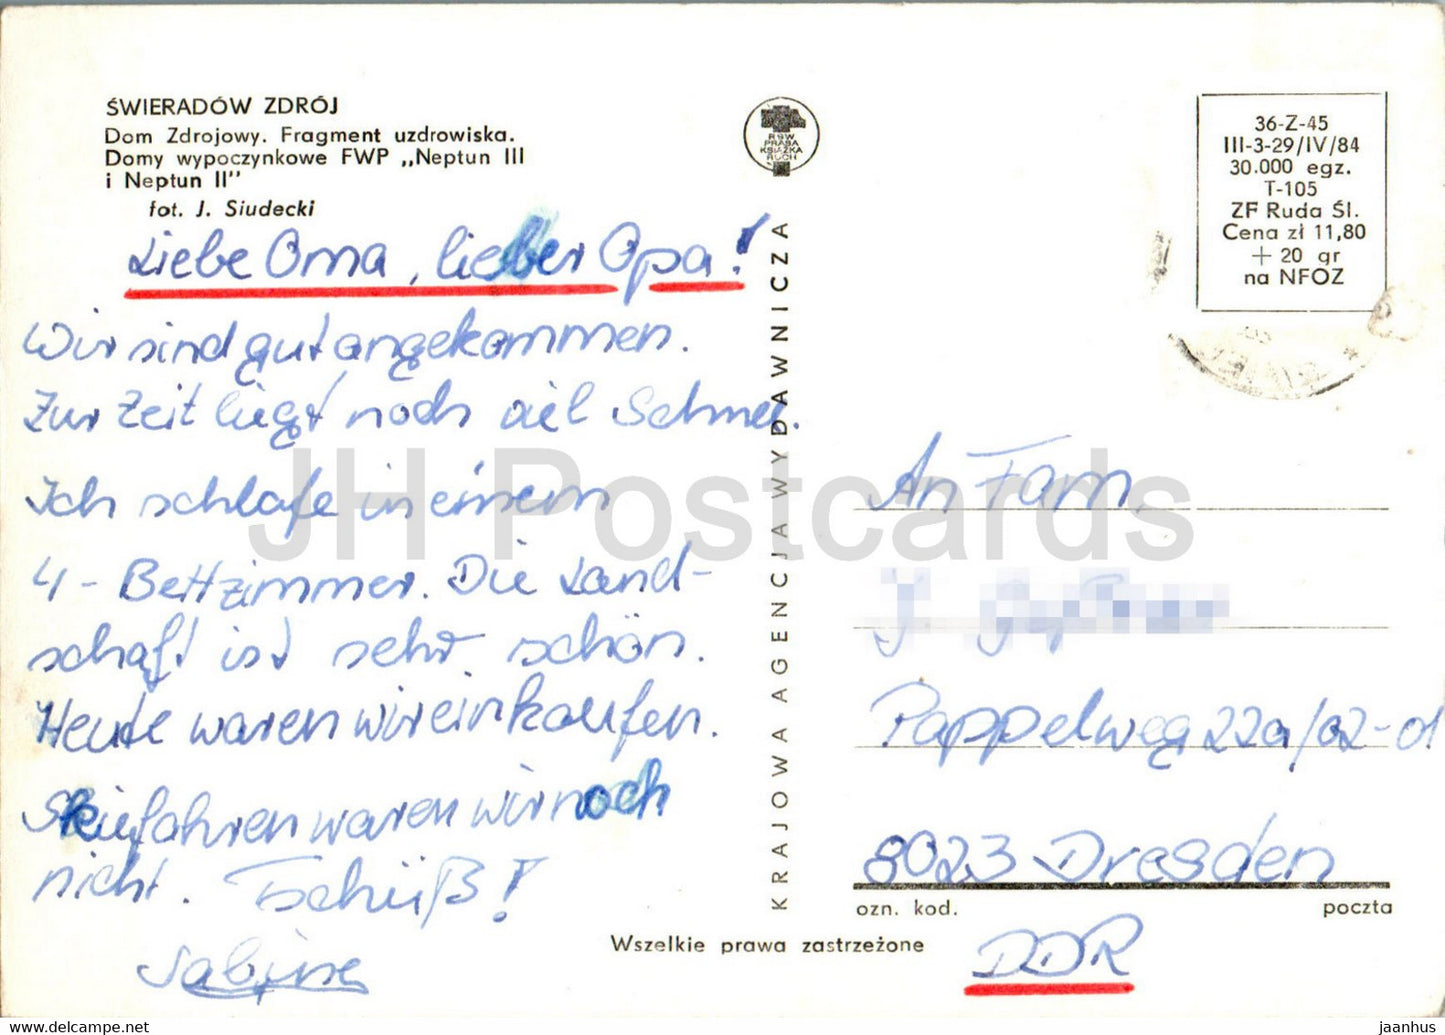 ŚWIERADÓW ZDRÓJ
Dom Zdrojowy. Fragment uzdrowiska.
Domy wypoczynkowe FWP „Neptun III
i Neptun II"
fot. J. Siudecki
Liebe Oma, lieber Opa!
Wir sind gut angekommen.
Zur Zeit liegt noch viel Schnee.
Ich schlafe in einem
4-Bettzimmer. Die Land-
schaft ist sehr schön.
Heute waren wir einkaufen.
Skiefahren waren wir noch
nicht. Tschüß!
Sabine
KRAJOWA AGENCJA WYDAWNICZA
RSW
PRASA
KSIĄŻKA
RUCH
36-Z-45
III-3-29/IV/84
30.000 egz.
T-105
ZF Ruda Śl.
Cena zł 11,80
+ 20 gr
na NFOZ
An Fam.
Pappelweg 22a/02-01
8023 Dresden
ozn. kod. poczta
DDR
Wszelkie prawa zastrzeżone
JH Postcards
hipstamp.com/store/jh-postcards
jaanhus